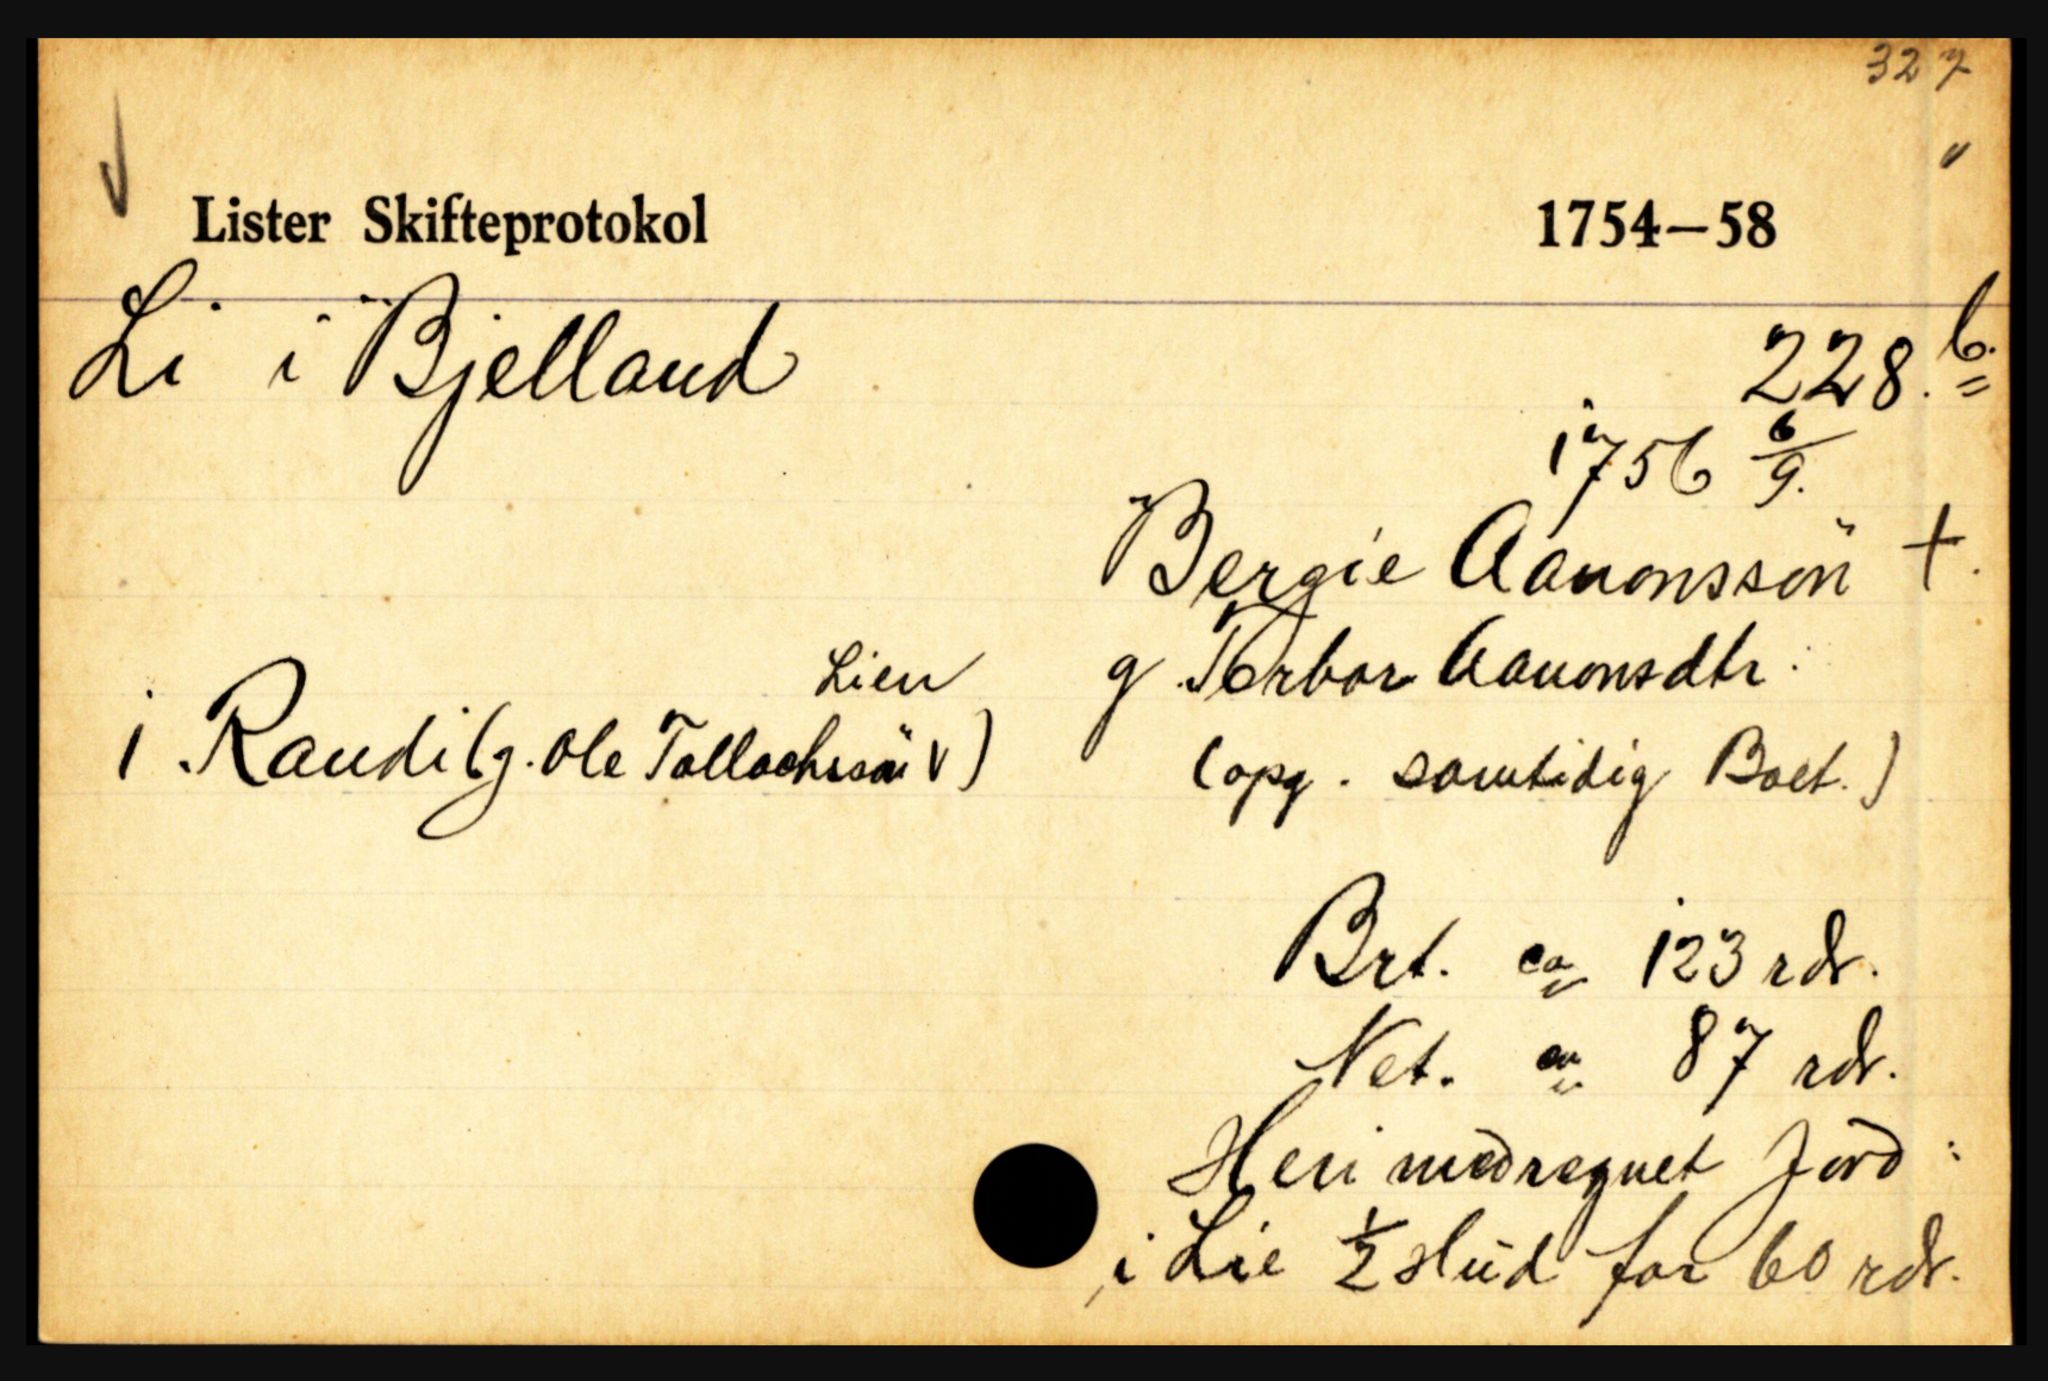 327
Lister Skifteprotokol 1754—58
Li i Bjelland 228.b.
1756 6/9.
Bergie Aanonssön +.
g. Torbor Aanonsdtr.
(opg. samtidig Boet.)
Lien
1. Randi (g. Ole Tallachssön v)
Brt. ca 123 rdr.
Net. ca 87 rdr.
Heri medregnet Jord:
i Lie 1/2 Hud for 60 rdr.